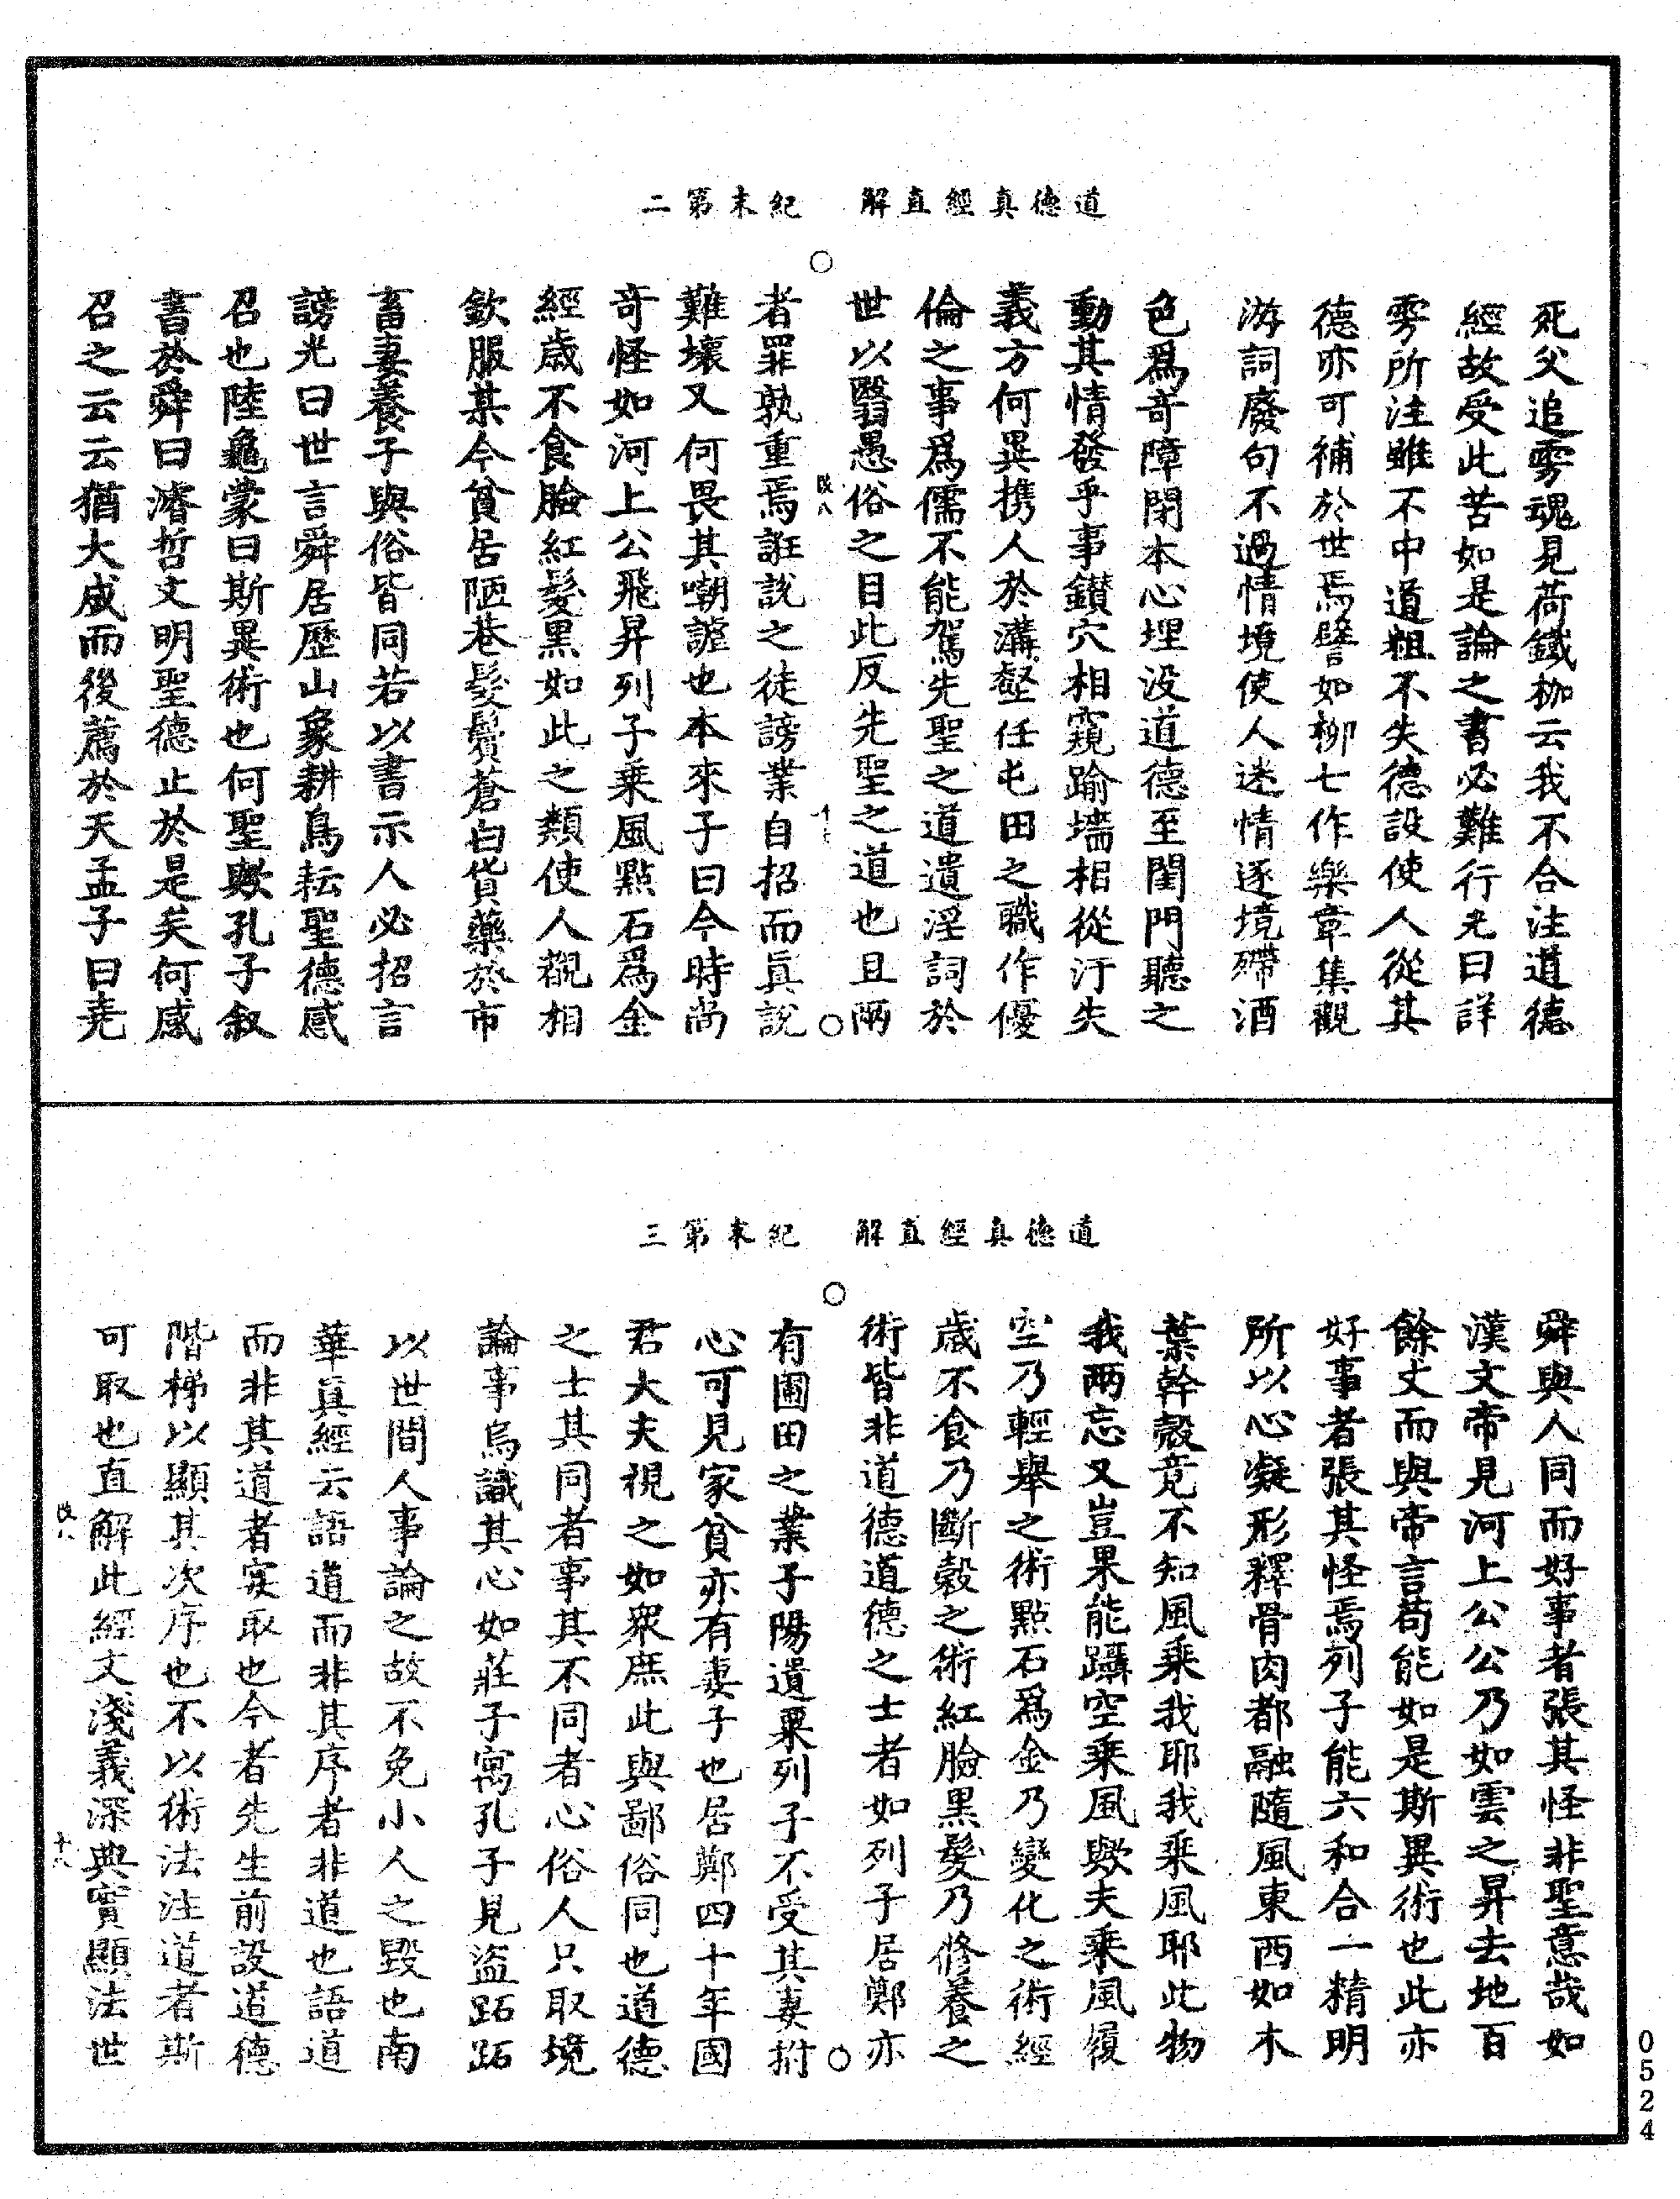 道德真經直解　紀末第二
死父追雱魂見荷鐵枷云我不合注道德
經故受此苦如是論之書必難行光曰詳
雱所注雖不中道粗不失德設使人從其
德亦可補於世焉譬如柳七作樂章集觀
游詞廢句不過情境使人迷情逐境殢酒
色爲奇障閉本心埋没道德至閨門聽之
動其情發乎事鑚穴相窺踰墻相從汙失
義方何異携人於溝壑任屯田之職作優
倫之事爲儒不能駕先聖之道遺淫詞於
世以翳愚俗之目此反先聖之道也且兩
者罪孰重焉誑說之徒謗業自招而眞說
難壞又何畏其嘲謔也本來子曰今時尚
奇怪如河上公飛昇列子乘風點石爲金
經歲不食臉紅髮黑如此之類使人觀相
欽服某今貧居陋巷髮鬢蒼白貨藥於市
畜妻養子與俗皆同若以書示人必招言
謗光曰世言舜居歷山象耕鳥耘聖德感
召也陸龜蒙曰斯異術也何聖歟孔子叙
書於舜曰濬哲文明聖德止於是矣何感
召之云云猶大成而後薦於天孟子曰堯
道德真經直解　紀末第三
舜與人同而好事者張其怪非聖意哉如
漢文帝見河上公公乃如雲之昇去地百
餘丈而與帝言苟能如是斯異術也此亦
好事者張其怪焉列子能六和合一精明
所以心凝形釋骨肉都融隨風東西如木
葉幹殼竟不知風乘我耶我乘風耶此物
我两忘又豈果能躡空乘風歟夫乘風履
空乃輕舉之術點石爲金乃變化之術經
歲不食乃斷穀之術紅臉黑髮乃修養之
術皆非道德道德之士者如列子居鄭亦
有圃田之業子陽遺粟列子不受其妻拊
心可見家貧亦有妻子也居鄭四十年國
君大夫視之如衆庶此與鄙俗同也道德
之士其同者事其不同者心俗人只取境
論事烏識其心如莊子寓孔子見盜跖跖
以世間人事論之故不免小人之毀也南
華真經云語道而非其序者非道也語道
而非其道者安取也今者先生前設道德
階梯以顯其次序也不以術法注道者斯
可取也直解此經文淺義深典實顯法世
改八　十八
0524